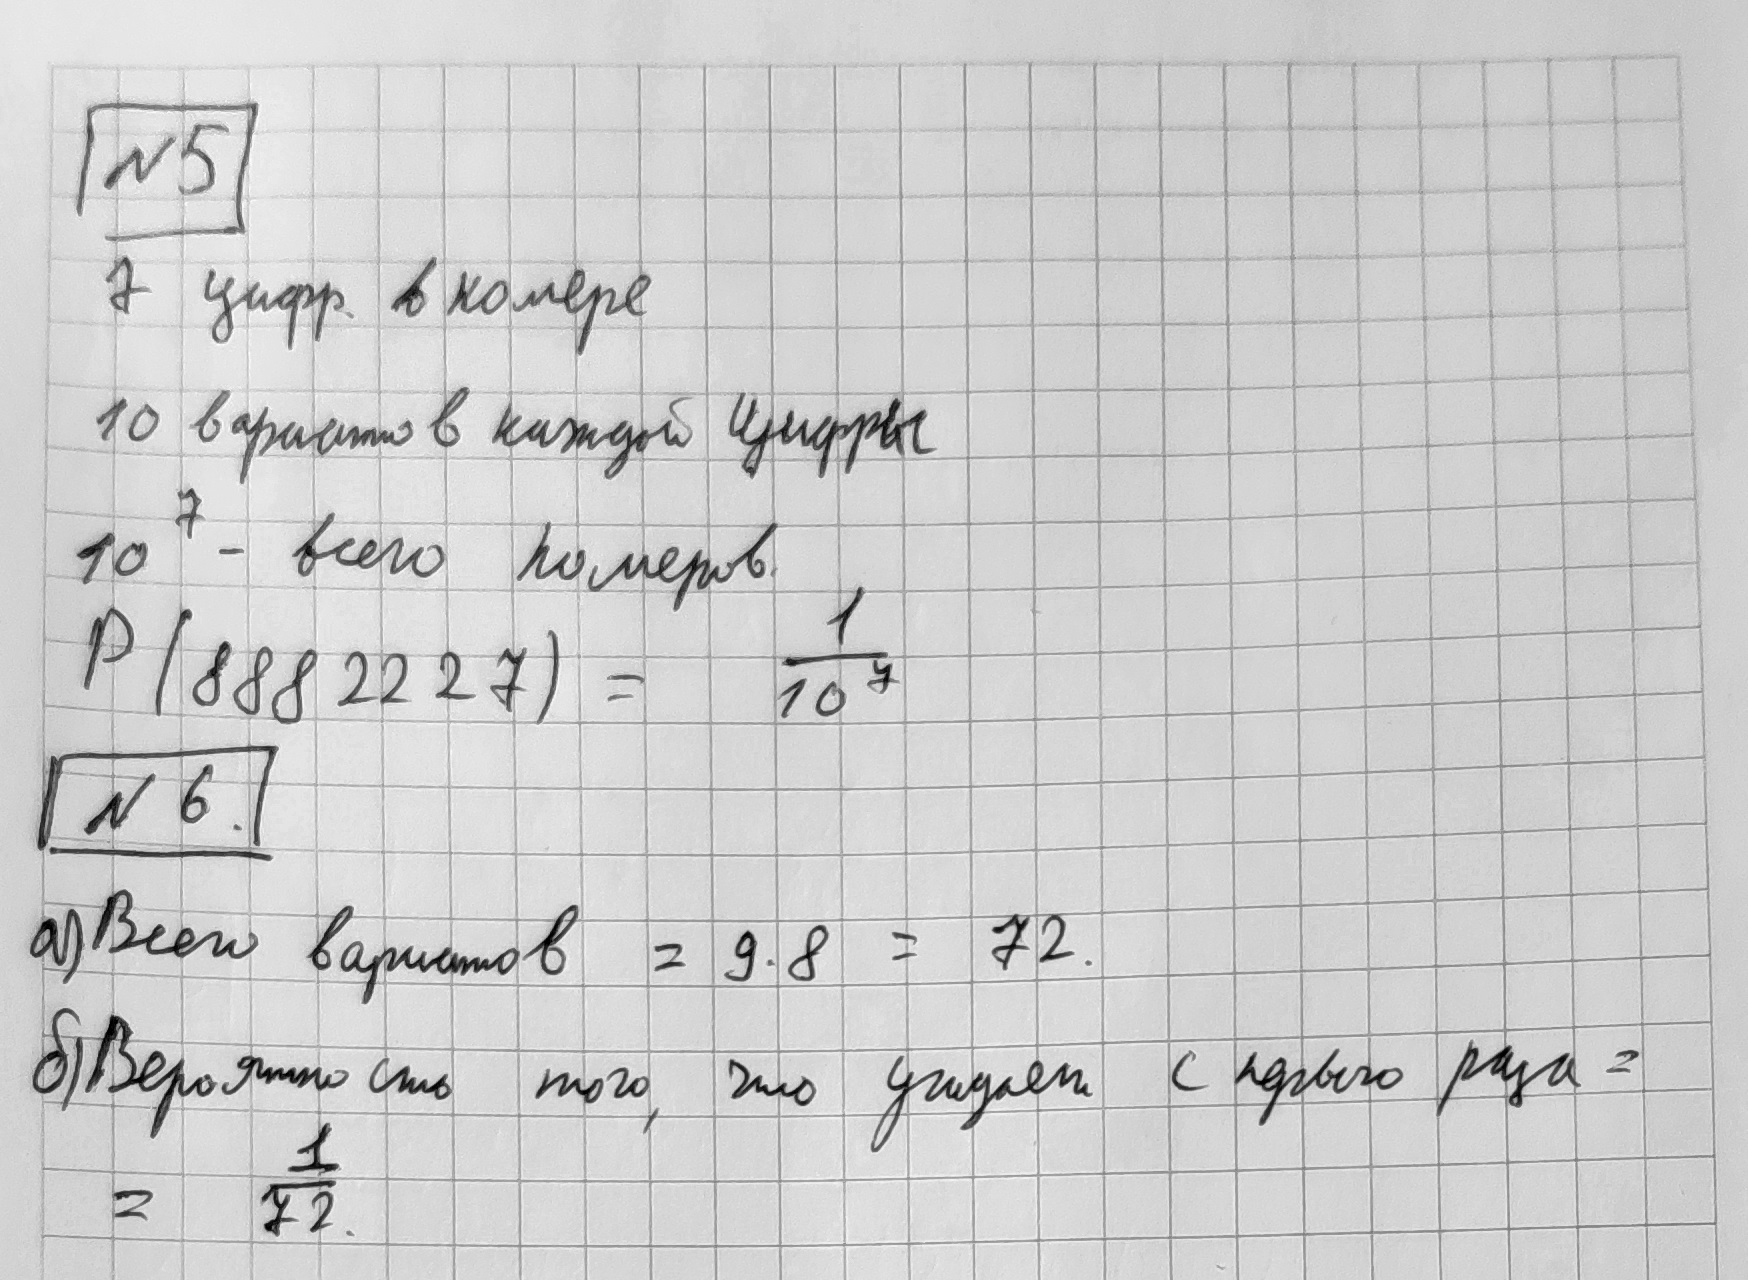 №5
7 цифр. в номере
10 вариантов каждой цифры
10⁷ - всего номеров.
P(8882227) = 1/10⁷
№6.
а) Всего вариантов = 9·8 = 72.
б) Вероятность того, что угадаем с первого раза =
= 1/72.